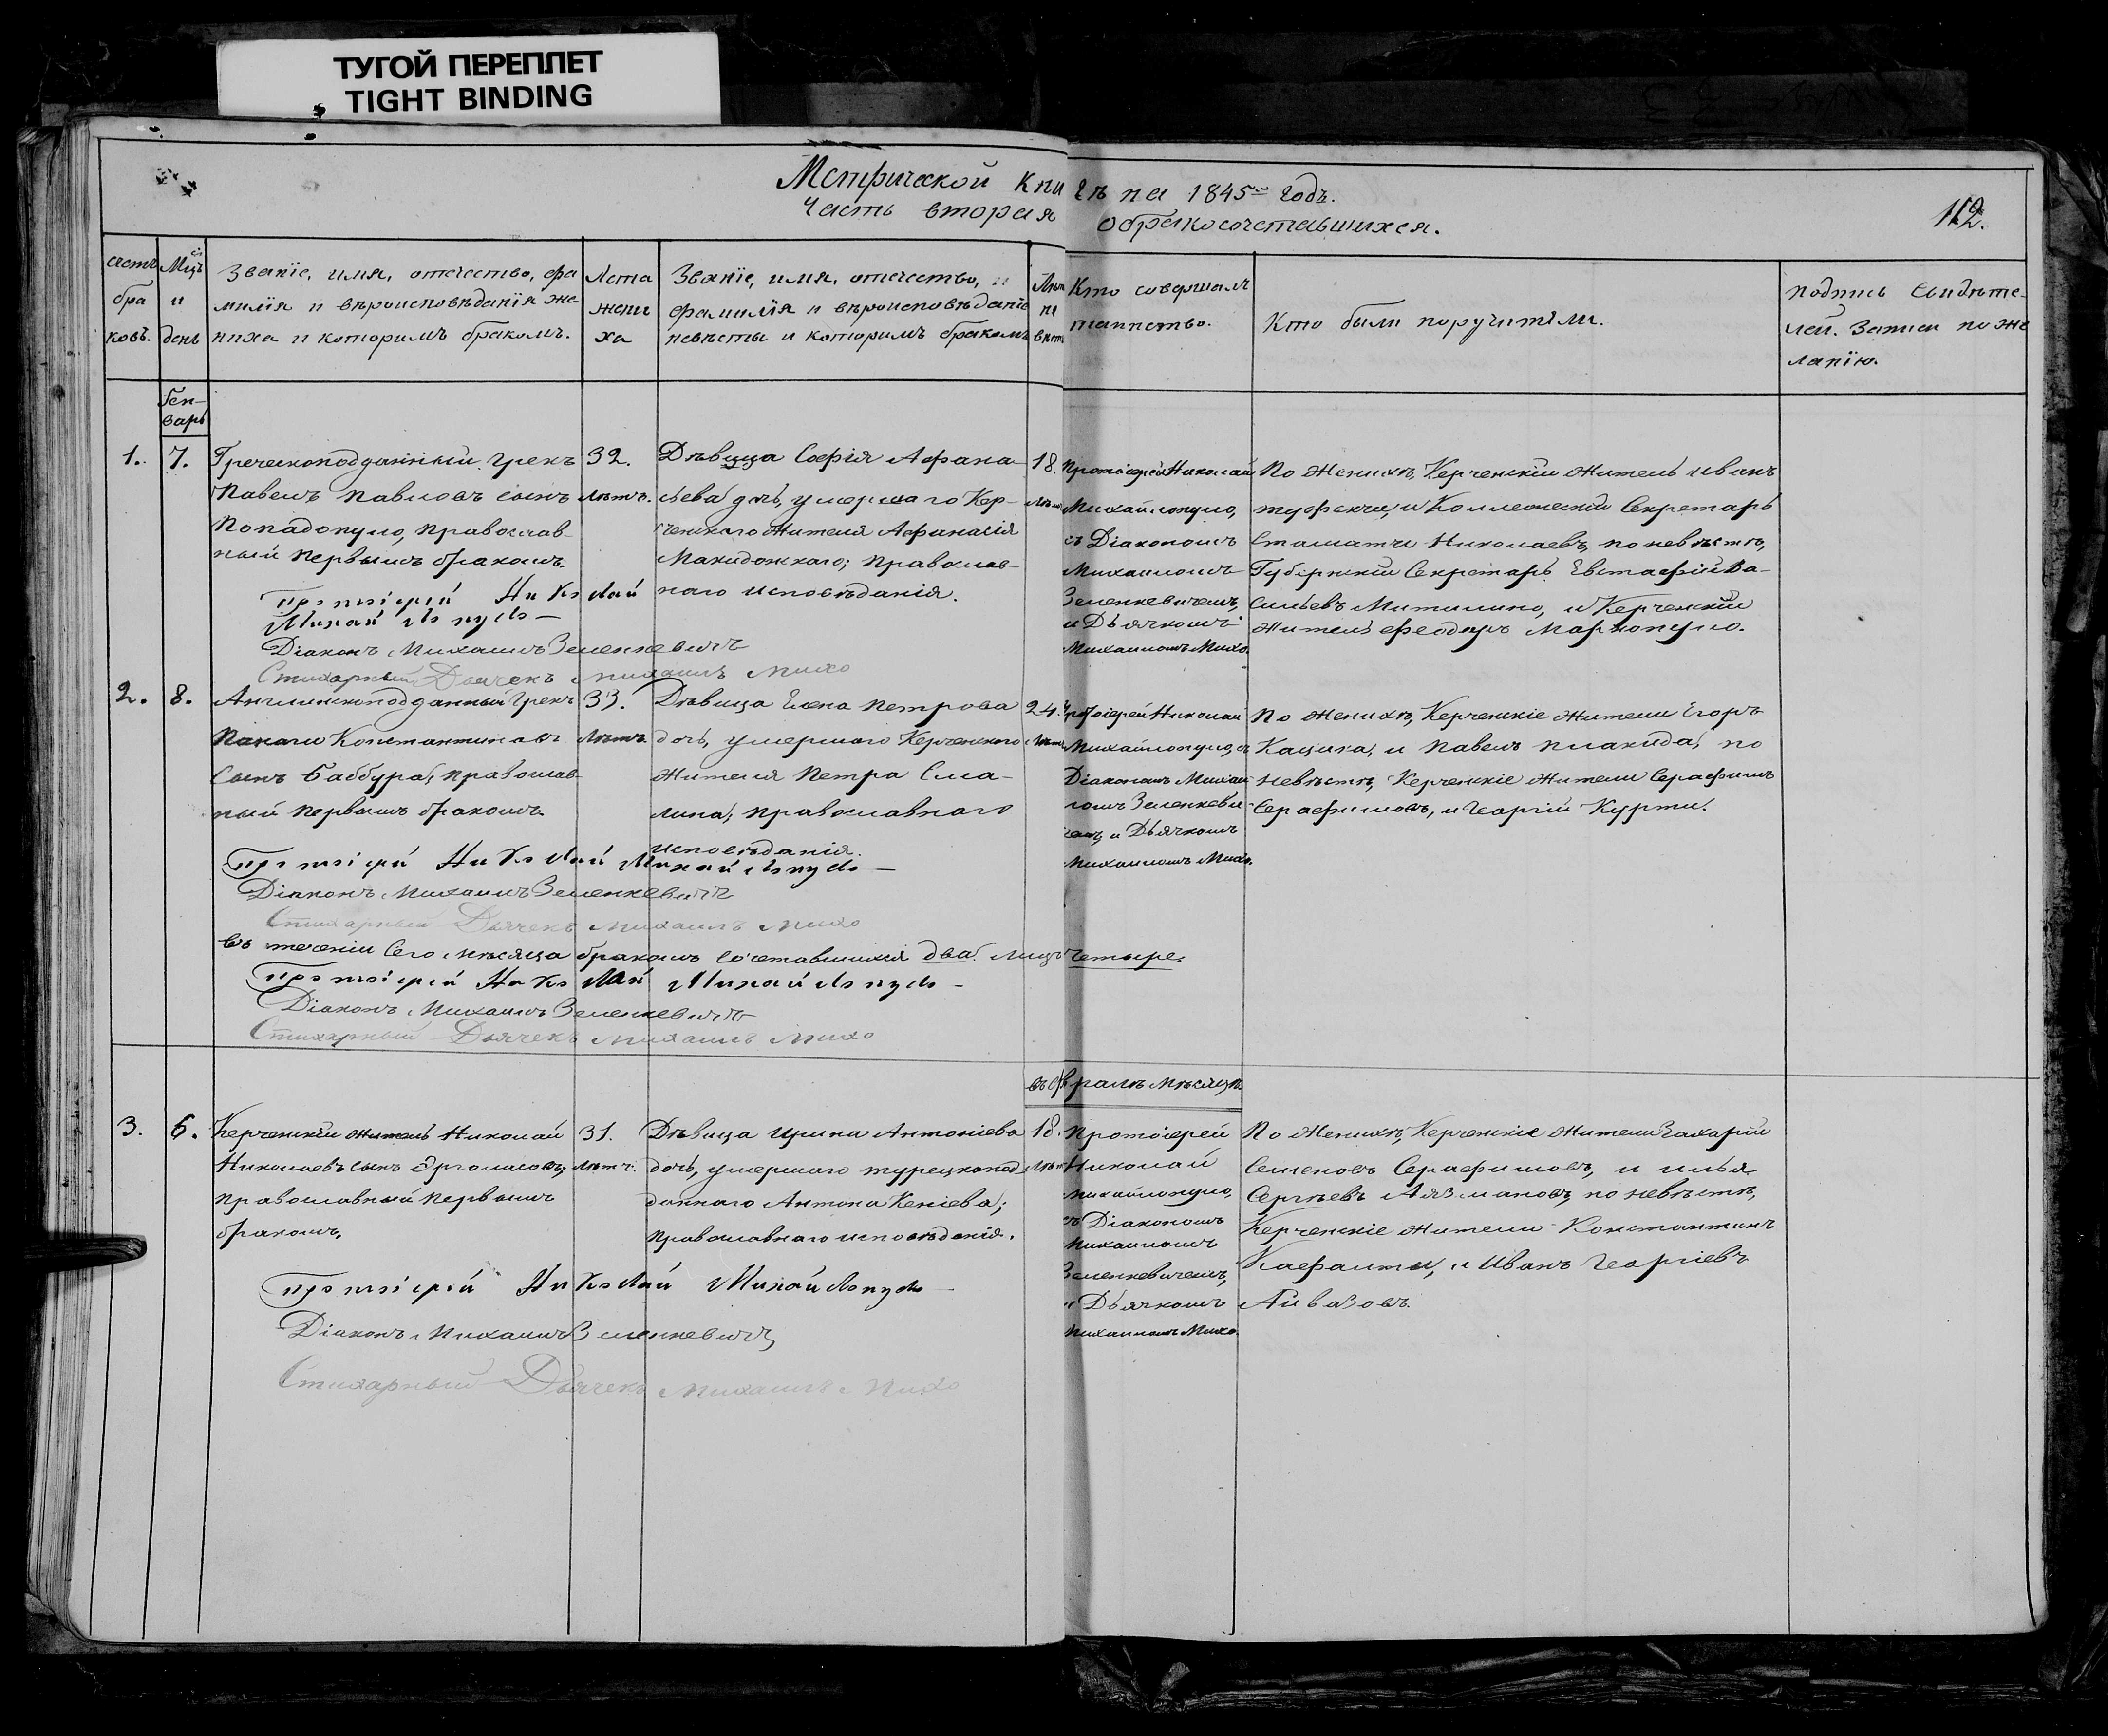 ТУГОЙ ПЕРЕПЛЕТ
TIGHT BINDING
Метрической книгѣ на 1845 годъ.
Часть вторая о бракосочетавшихся.
112.
счетъ бра ковъ.
Мцъ и день
Званіе, имя, отчество, фа
милія и вѣроисповѣданія же
ниха и которымъ бракомъ.
Лета
жени
ха
Званіе, имя, отчество, и
фамилія и вѣроисповѣданіе
невѣсты и которымъ бракомъ
Лѣта
не
вѣст
Кто совершалъ
таинство.
Кто были поручители.
подпись Свидѣте-
лей. Записи по же
ланію.
Ген-
варь
1.
7.
Греческоподданный Грекъ
Павелъ Павловъ сынъ
Попадопуло, православ-
ный первымъ бракомъ.
32.
Лѣтъ.
Дѣвица Софія Афана-
сьева дочь, умершаго Кер-
ченскаго жителя Афанасія
Макидонскаго; православ-
наго исповѣданія.
18.
Протоіерей Николай
Михайлопуло,
съ Діакономъ
Михаиломъ
Зеленкевичемъ,
и Дьячкомъ
Михаиломъ Михо.
По женихѣ, Керченскій житель Иванъ
туфекчи, и Коллежскій Секретарь
Стамати Николаевъ, по невѣстѣ,
Губернскій Секретарь Евстафій Ва-
сильевъ Митилино, и Керченскій
житель Феодоръ Маркопуло.
Протоіерей Николай
Михайлопуло
Діаконъ Михаилъ Зеленкевичъ
Стихарный Дьячекъ Михаилъ Михо
2.
8.
Англинскоподданный Грекъ
Панаги Константиновъ
Сынъ Баббура, православ-
ный первымъ бракомъ.
33.
Лѣтъ.
Дѣвица Елена Петрова
дочь, умершаго Керченскаго
жителя Петра Сма-
лина, православнаго
исповѣданія.
24.
Протоіерей Николай
Михайлопуло, съ
Діакономъ Михаи
ломъ Зеленкеви
чемъ, и Дьячкомъ
Михаиломъ Михо.
По женихѣ, Керченскіе жители Егоръ
Кацика, и Павелъ Плакида, по
невѣстѣ, Керченскіе жители Серафимъ
Серафимовъ, и Георгій Курти.
Протоіерей Николай Михайлопуло
Діаконъ Михаилъ Зеленкевичъ
Стихарный Дьячекъ Михаилъ Михо
въ теченіи сего мѣсяца бракомъ сочетавшихся два. Лицъ четыре.
Протоіерей Николай Михайлопуло
Діаконъ Михаилъ Зеленкевичъ
Стихарный Дьячекъ Михаилъ Михо
въ Февралѣ мѣсяцѣ
3.
6.
Керченскій житель Николай
Николаевъ сынъ Эргомисовъ,
православный первымъ
бракомъ.
31.
Лѣтъ.
Дѣвица Ирина Антоніева
дочь, умершаго турецкопод
даннаго Антона Кеніева;
православнаго исповѣданія.
18.
Протоіерей
Николай
Михайлопуло,
съ Діакономъ
Михаиломъ
Зеленкевичемъ,
и Дьячкомъ
Михаиломъ Михо.
По женихѣ, Керченскіе жители Захарій
Семеновъ Серафимовъ, и Илья
Сергѣевъ Аязмановъ, по невѣстѣ,
Керченскіе жители Константинъ
Кафалты, и Иванъ Георгіевъ
Айвазовъ.
Протоіерей Николай Михайлопуло
Діаконъ Михаилъ Зеленкевичъ
Стихарный Дьячекъ Михаилъ Михо